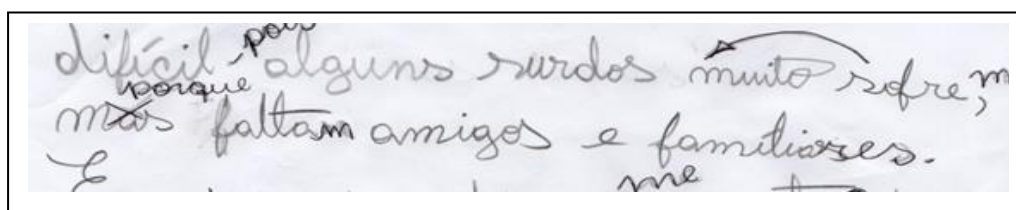 difícil, pois alguns surdos muito sofre, m
porque
mas faltam amigos e familiares.
E me